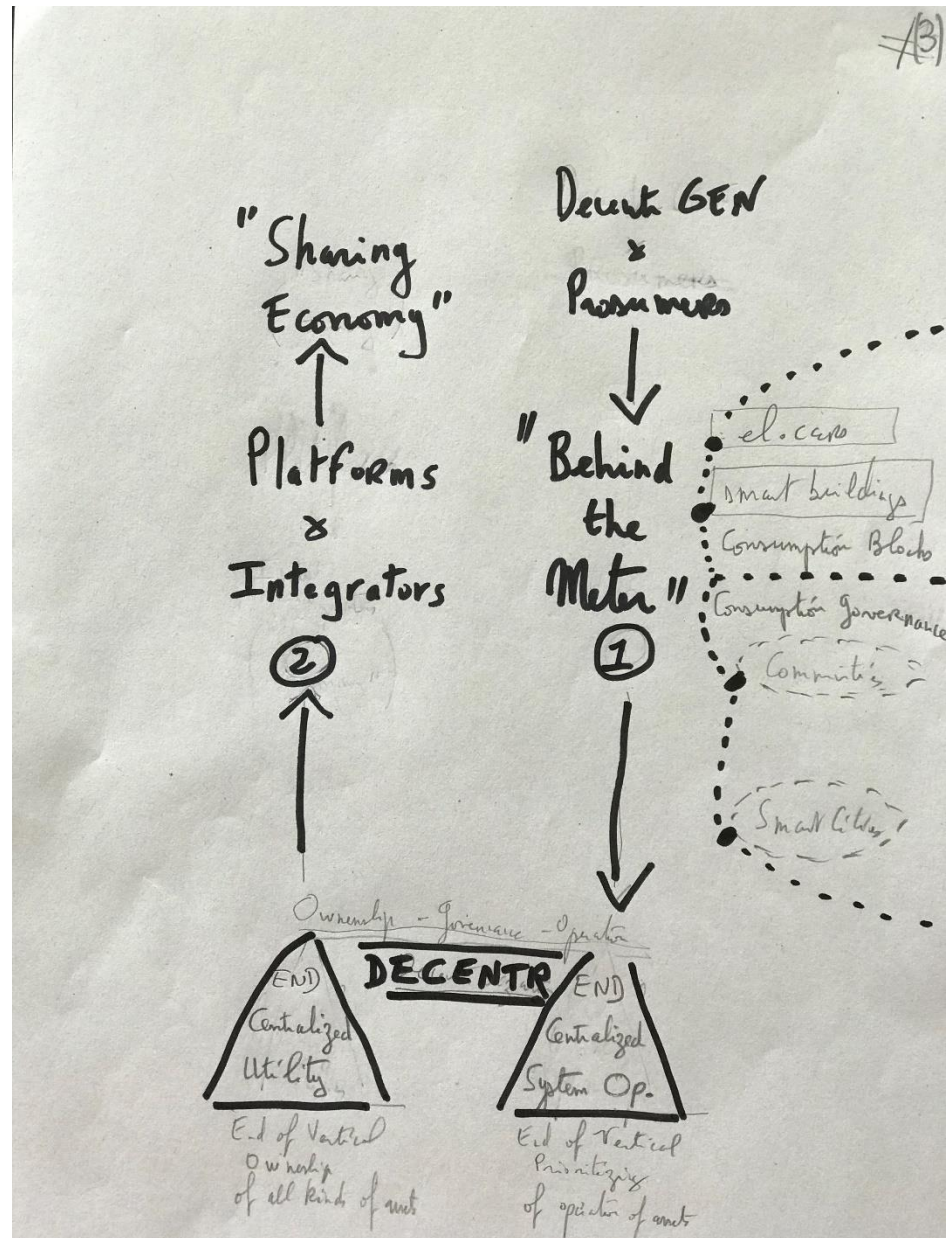 (3)
"Sharing
Economy"
Platforms
&
Integrators
2
Decentr GEN
&
Prosumers
"Behind
the
Meter"
1
el. cars
smart buildings
Consumption Blocks
Consumption Governance
Communities
Smart Cities
Ownership - Governance - Operation
DECENTR
END
Centralized
Utility
End of Vertical
Ownership
of all kinds of assets
END
Centralized
System Op.
End of Vertical
Prioritizing
of operation of assets